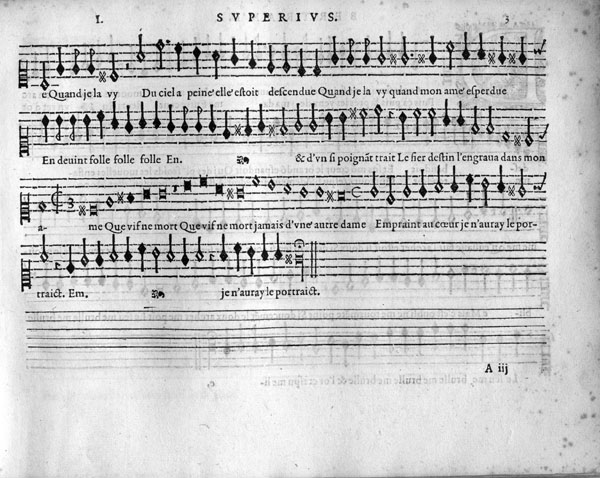 I. SVPERIVS. 3
e Quand je la vy Du ciel a peine' elle' estoit descendue Quand je la vy quand mon ame' esperdue
En deuint folle folle folle En. & d'vn si poignāt trait Le fier destin l'engraua dans mon
a- me Que vif ne mort Que vif ne mort jamais d'vne' autre dame Empraint au cœur je n'auray le por-
traict. Em. je n'auray le portraict.
A iij